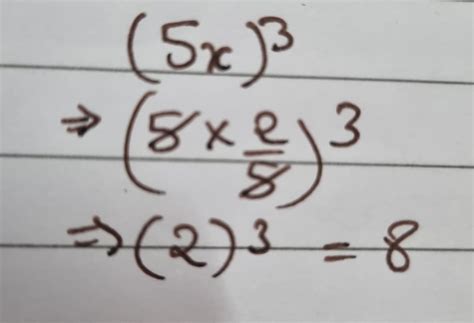 (5x)³
⇒ (5 × 2/5)³
⇒ (2)³ = 8